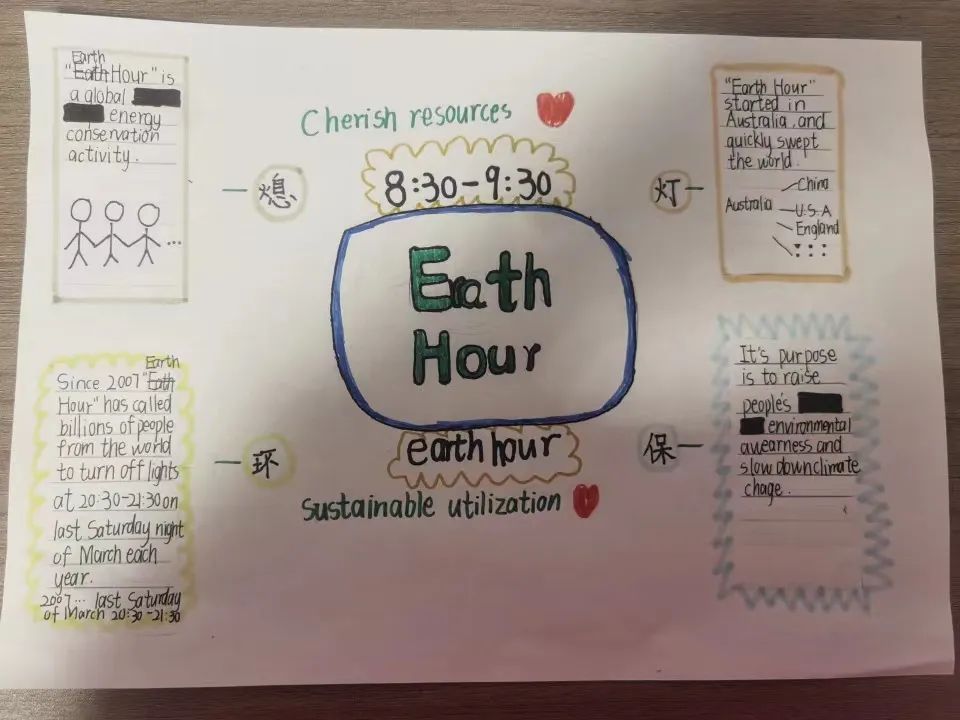 Earth
"Eath Hour" is
a global
energy
conservation
activity.
Cherish resources
8:30-9:30
"Earth Hour"
started in
Australia, and
quickly swept
the world.
China
Australia
U.S.A
England
熄
灯
Erath
Hour
earth hour
sustainable utilization
环
保
Earth
Since 2007 "Eath
Hour" has called
billions of people
from the world
to turn off lights
at 20:30-21:30 on
last Saturday night
of March each
year.
2007... last Saturday
of March 20:30-21:30
It's purpose
is to raise
people's
environmental
awearness and
slow down climate
chage.